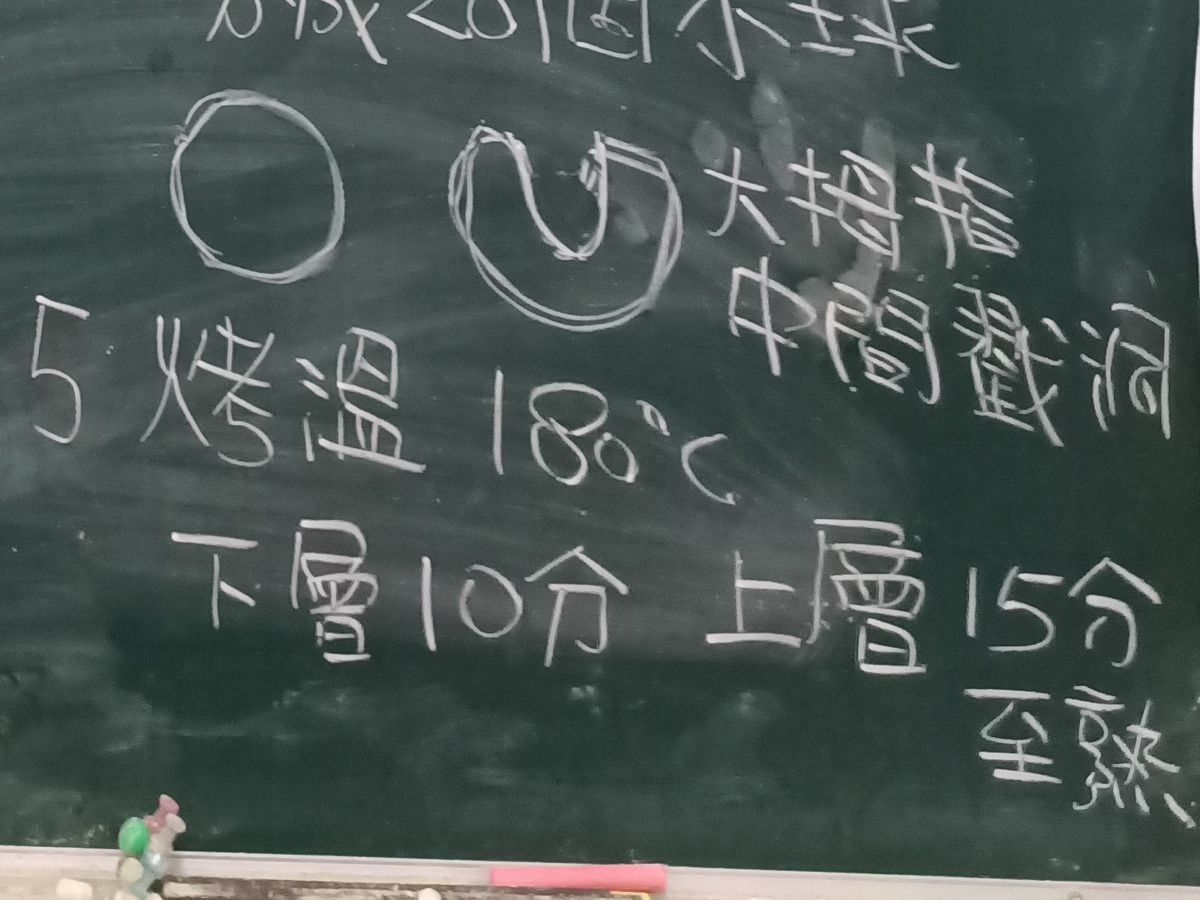 分成20個小球
大拇指
中間戳洞
5 烤溫 180°C
下層10分 上層15分
至熟